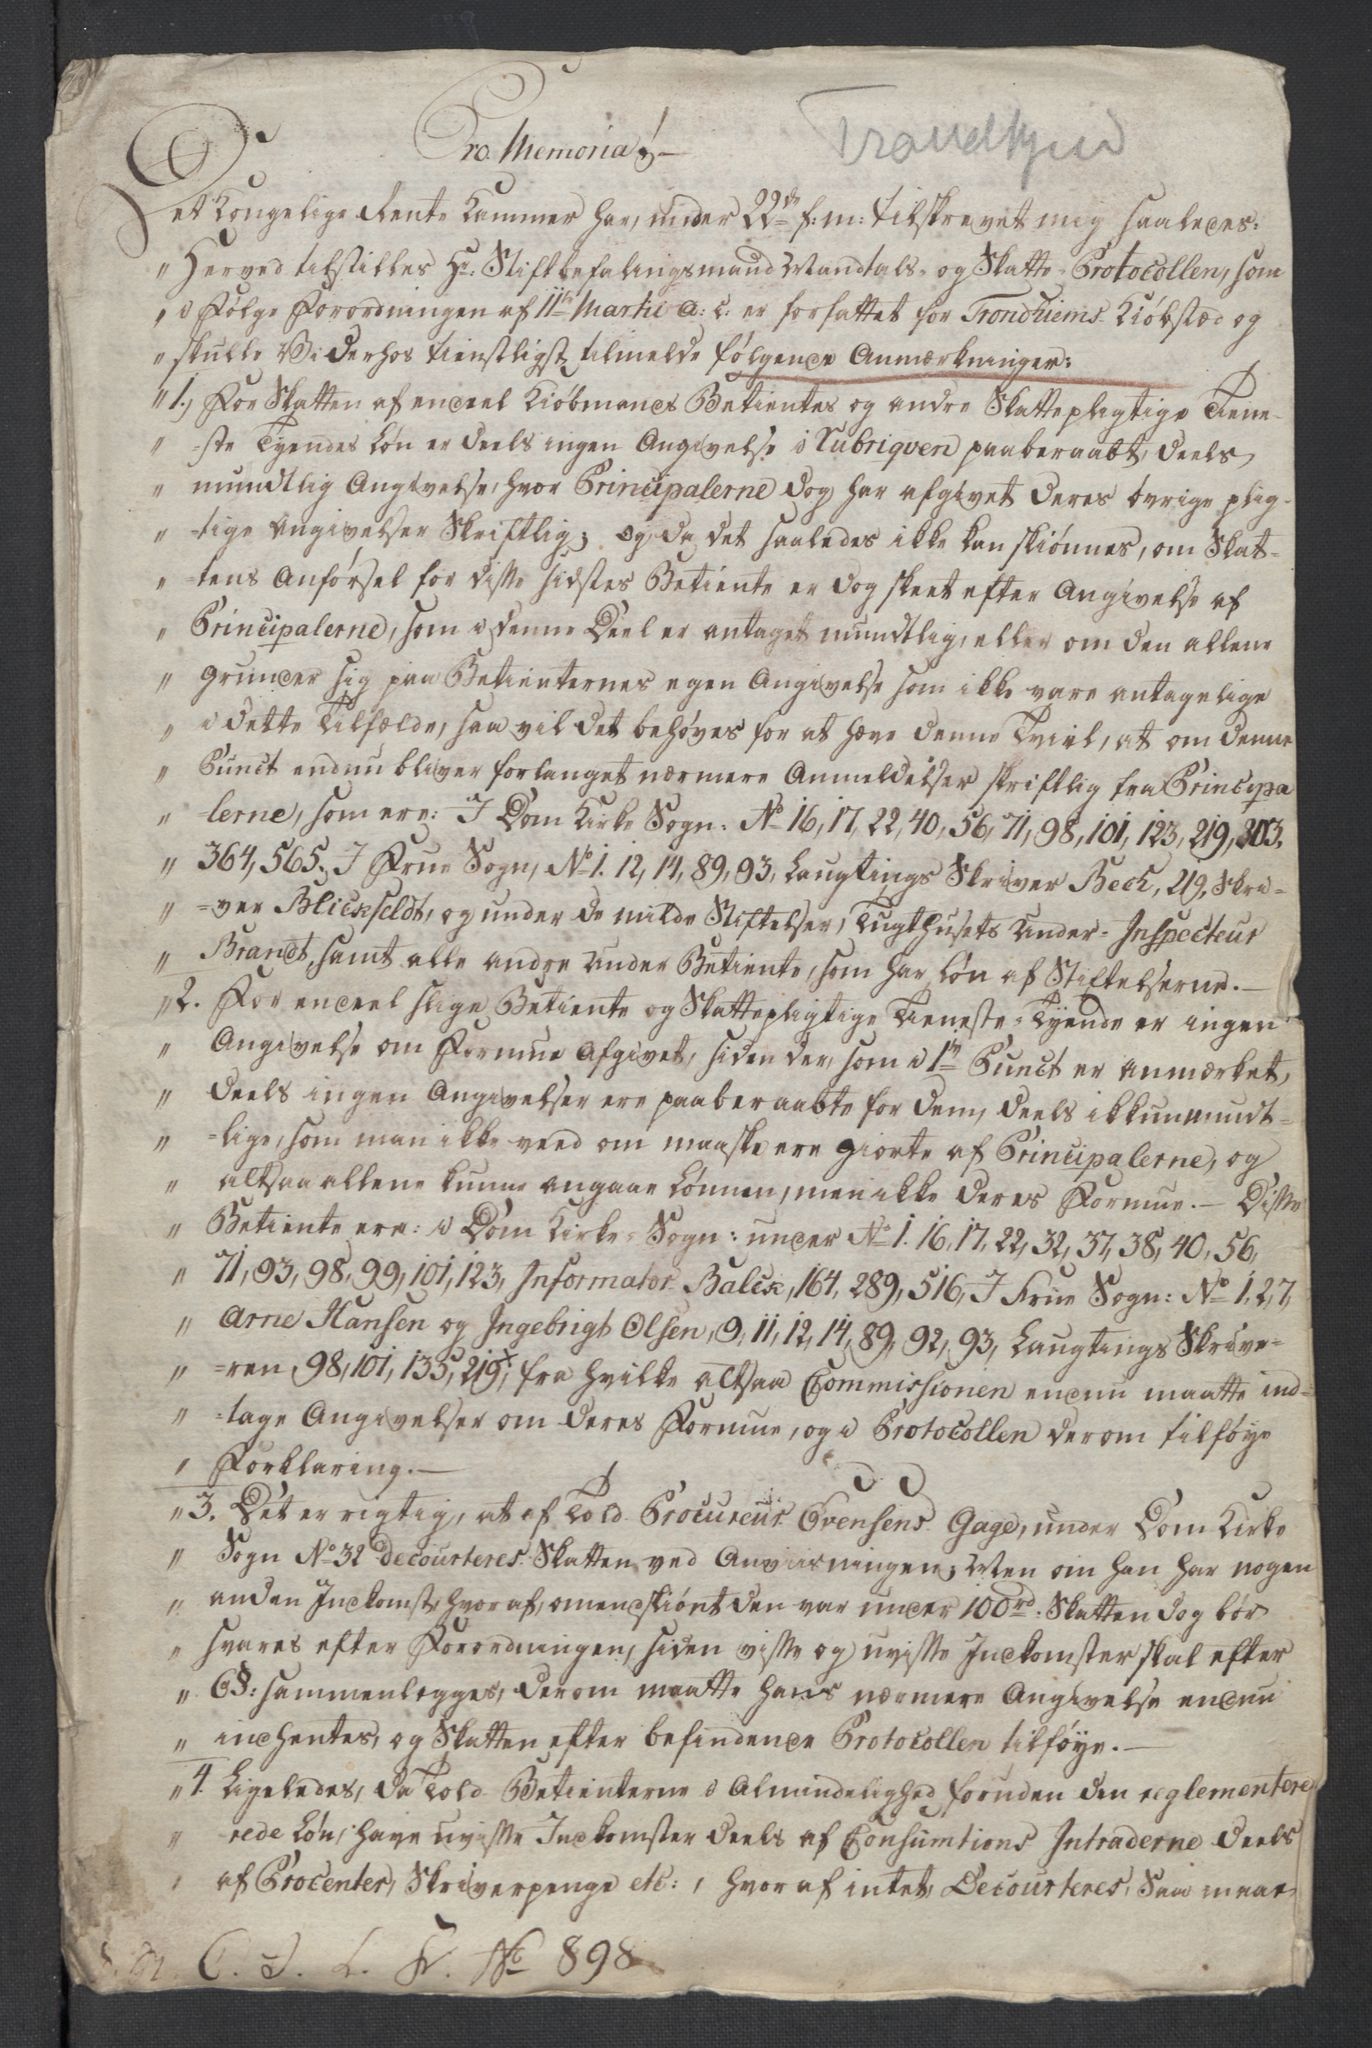 Trondhjem
Pro Memoria!
Det Kongelige Rente Kammer har, under 22de f: m: tilskrevet mig saaledes:
" Herved tilstilles Hr: Stiftbefalingsmand Mandtals- og Skatte-Protocollen, som
" i Følge Forordningen af 11te Martii a: c: er forfattet for Trondhiems Kiøbstæd og
" skulle Vi derhos tienstligst tilmelde følgende Anmærkninger:
" 1., For Skatten af endeel Kiøbmands Betientes og andre Skattepligtige Tiene-
" -ste Tyendes Løn er deels ingen Angivelse i Rubriqven paaberaabt, deels
" mundtlig Angivelse, hvor Principalerne dog har afgivet deres øvrige plig-
" -tige Angivelser Skriftlig; og da det saaledes ikke kan skiønnes, om Skat-
" -tens Anførsel for disse sidstes Betiente er dog skeet efter Angivelse af
" Principalerne, som i denne Deel er antaget mundtlig, eller om den allene
" grunder sig paa Betienternes egen Angivelse som ikke vare antagelige
" i dette Tilfælde, saa vil det behøves for at hæve denne Tvivl, at om denne
" Punct endnu bliver forlanget nærmere Anmeldelser skriftlig fra Principa
" -lerne, som ere: I Dom Kirke Sogn: No 16, 17, 22, 40, 56, 71, 98, 101, 123, 219, 303,
" 364, 565, I Frue Sogn, No 1. 12, 14, 89, 93, Laugtings Skriver Bech, 219, Skri-
" -ver Blickfeldt, og under de milde Stiftelser, Tugthusets Under-Inspecteur
" Brandt, samt alle andre Under Betiente, som har Løn af Stiftelserne.—
" 2. For endeel slige Betiente og Skattepligtige Tieneste-Tyende er ingen
" Angivelse om Formue afgivet, siden der, som i 1te Punct er anmærket,
" deels ingen Angivelser ere paaberaabte for dem, deels ikkun mundt-
" -lige, som man ikke veed om maaske ere giorte af Principalerne, og
" altsaa allene kunne angaae Lønnen, men ikke deres Formue.— Disse
" Betiente ere: i Dom Kirke-Sogn: under No 1. 16, 17, 22, 32, 37, 38, 40, 56,
" 71, 93, 98, 99, 101, 123, Informator Balck, 164, 289, 516, I Frue Sogn: No 1, 2, 7,
" Arne Hansen og Ingebrigt Olsen, 9, 11, 12, 14, 89, 92, 93, Laugtings Skrive-
" -ren, 98, 101, 135, 219; fra hvilke altsaa Commissionen endnu maatte ind-
" -tage Angivelser om deres Formue, og i Protocollen derom tilføye
" Forklaring.—
" 3. Det er rigtig, at af Told Procureur Evensens Gage, under Dom Kirke
" Sogn No 32 decourteres Skatten ved Anviisningen; Men om han har nogen
" anden Indkomst, hvoraf, omendskiønt den var under 100rd. Skatten dog bør
" svares efter Forordningen, siden visse og uvisse Indkomster skal efter
" 6§: sammenlegges, derom maatte hans nærmere Angivelse endnu
" indhentes, og Skatten efter befindende Protocollen tilføye.—
" 4. Ligeledes, da Told Betienterne i Almindelighed foruden den reglementere
" -rede Løn, have uvisse Indkomster deels af Consumtions Intraderne deels
" af Procenter, Skriverpenge etc: , hvoraf intet, Decourteres, Saa maat-
C. J. L. Fr. No 898